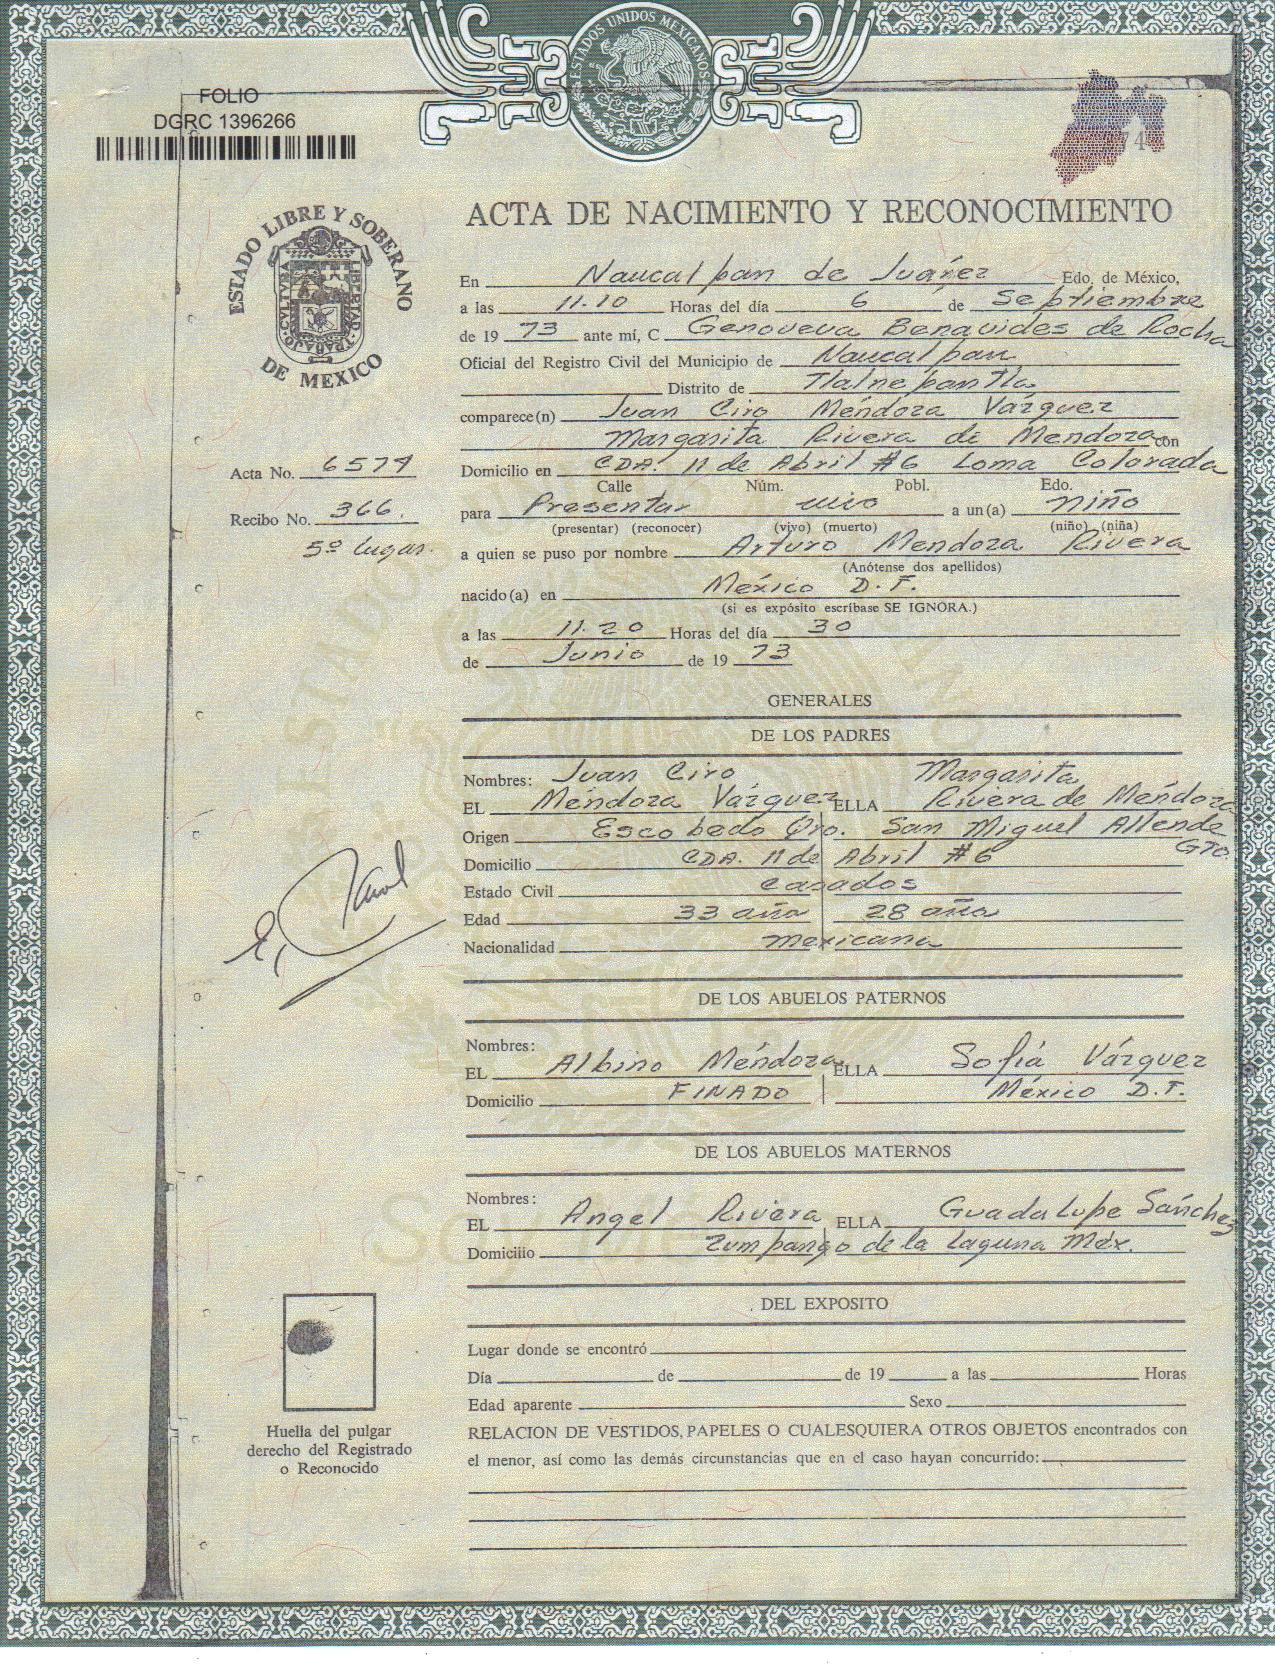 ESTADOS UNIDOS MEXICANOS
FOLIO
DGRC 1396266
74
ESTADO LIBRE Y SOBERANO
DE MEXICO
LIBERTAD TRABAJO CVLTVRA
ACTA DE NACIMIENTO Y RECONOCIMIENTO
En Naucalpan de Juárez Edo. de México,
a las 11.10 Horas del día 6 de Septiembre
de 19 73 ante mí, C Genoveva Benavides de Rocha
Oficial del Registro Civil del Municipio de Naucalpan
Distrito de Tlalnepantla
comparece(n) Juan Ciro Méndoza Vázquez
Margarita Rivera de Mendoza con
Acta No. 6574
Domicilio en CDA. 11 de Abril #6 Loma Colorada
Calle Núm. Pobl. Edo.
Recibo No. 366.
para Presentar vivo a un(a) niño
(presentar) (reconocer) (vivo) (muerto) (niño) (niña)
5º lugar.
a quien se puso por nombre Arturo Mendoza Rivera
(Anótense dos apellidos)
nacido(a) en México D.F.
(si es expósito escríbase SE IGNORA.)
a las 11.20 Horas del día 30
de Junio de 19 73
GENERALES
DE LOS PADRES
Nombres: Juan Ciro Margarita
EL Méndoza Vázquez ELLA Rivera de Méndoza
Origen Escobedo Qro. San Miguel Allende
GTO.
Domicilio CDA. 11 de Abril #6
Estado Civil casados
Edad 33 año 28 año
Nacionalidad mexicana
DE LOS ABUELOS PATERNOS
Nombres:
EL Albino Méndoza ELLA Sofiá Vázquez
Domicilio FINADO México D.F.
DE LOS ABUELOS MATERNOS
Nombres:
EL Angel Rivera ELLA Guadalupe Sánchez
Domicilio Zumpango de la Laguna Méx.
Soy Méx
DEL EXPOSITO
Lugar donde se encontró
Día de de 19 a las Horas
Edad aparente Sexo
RELACION DE VESTIDOS, PAPELES O CUALESQUIERA OTROS OBJETOS encontrados con
el menor, así como las demás circunstancias que en el caso hayan concurrido:
Huella del pulgar
derecho del Registrado
o Reconocido